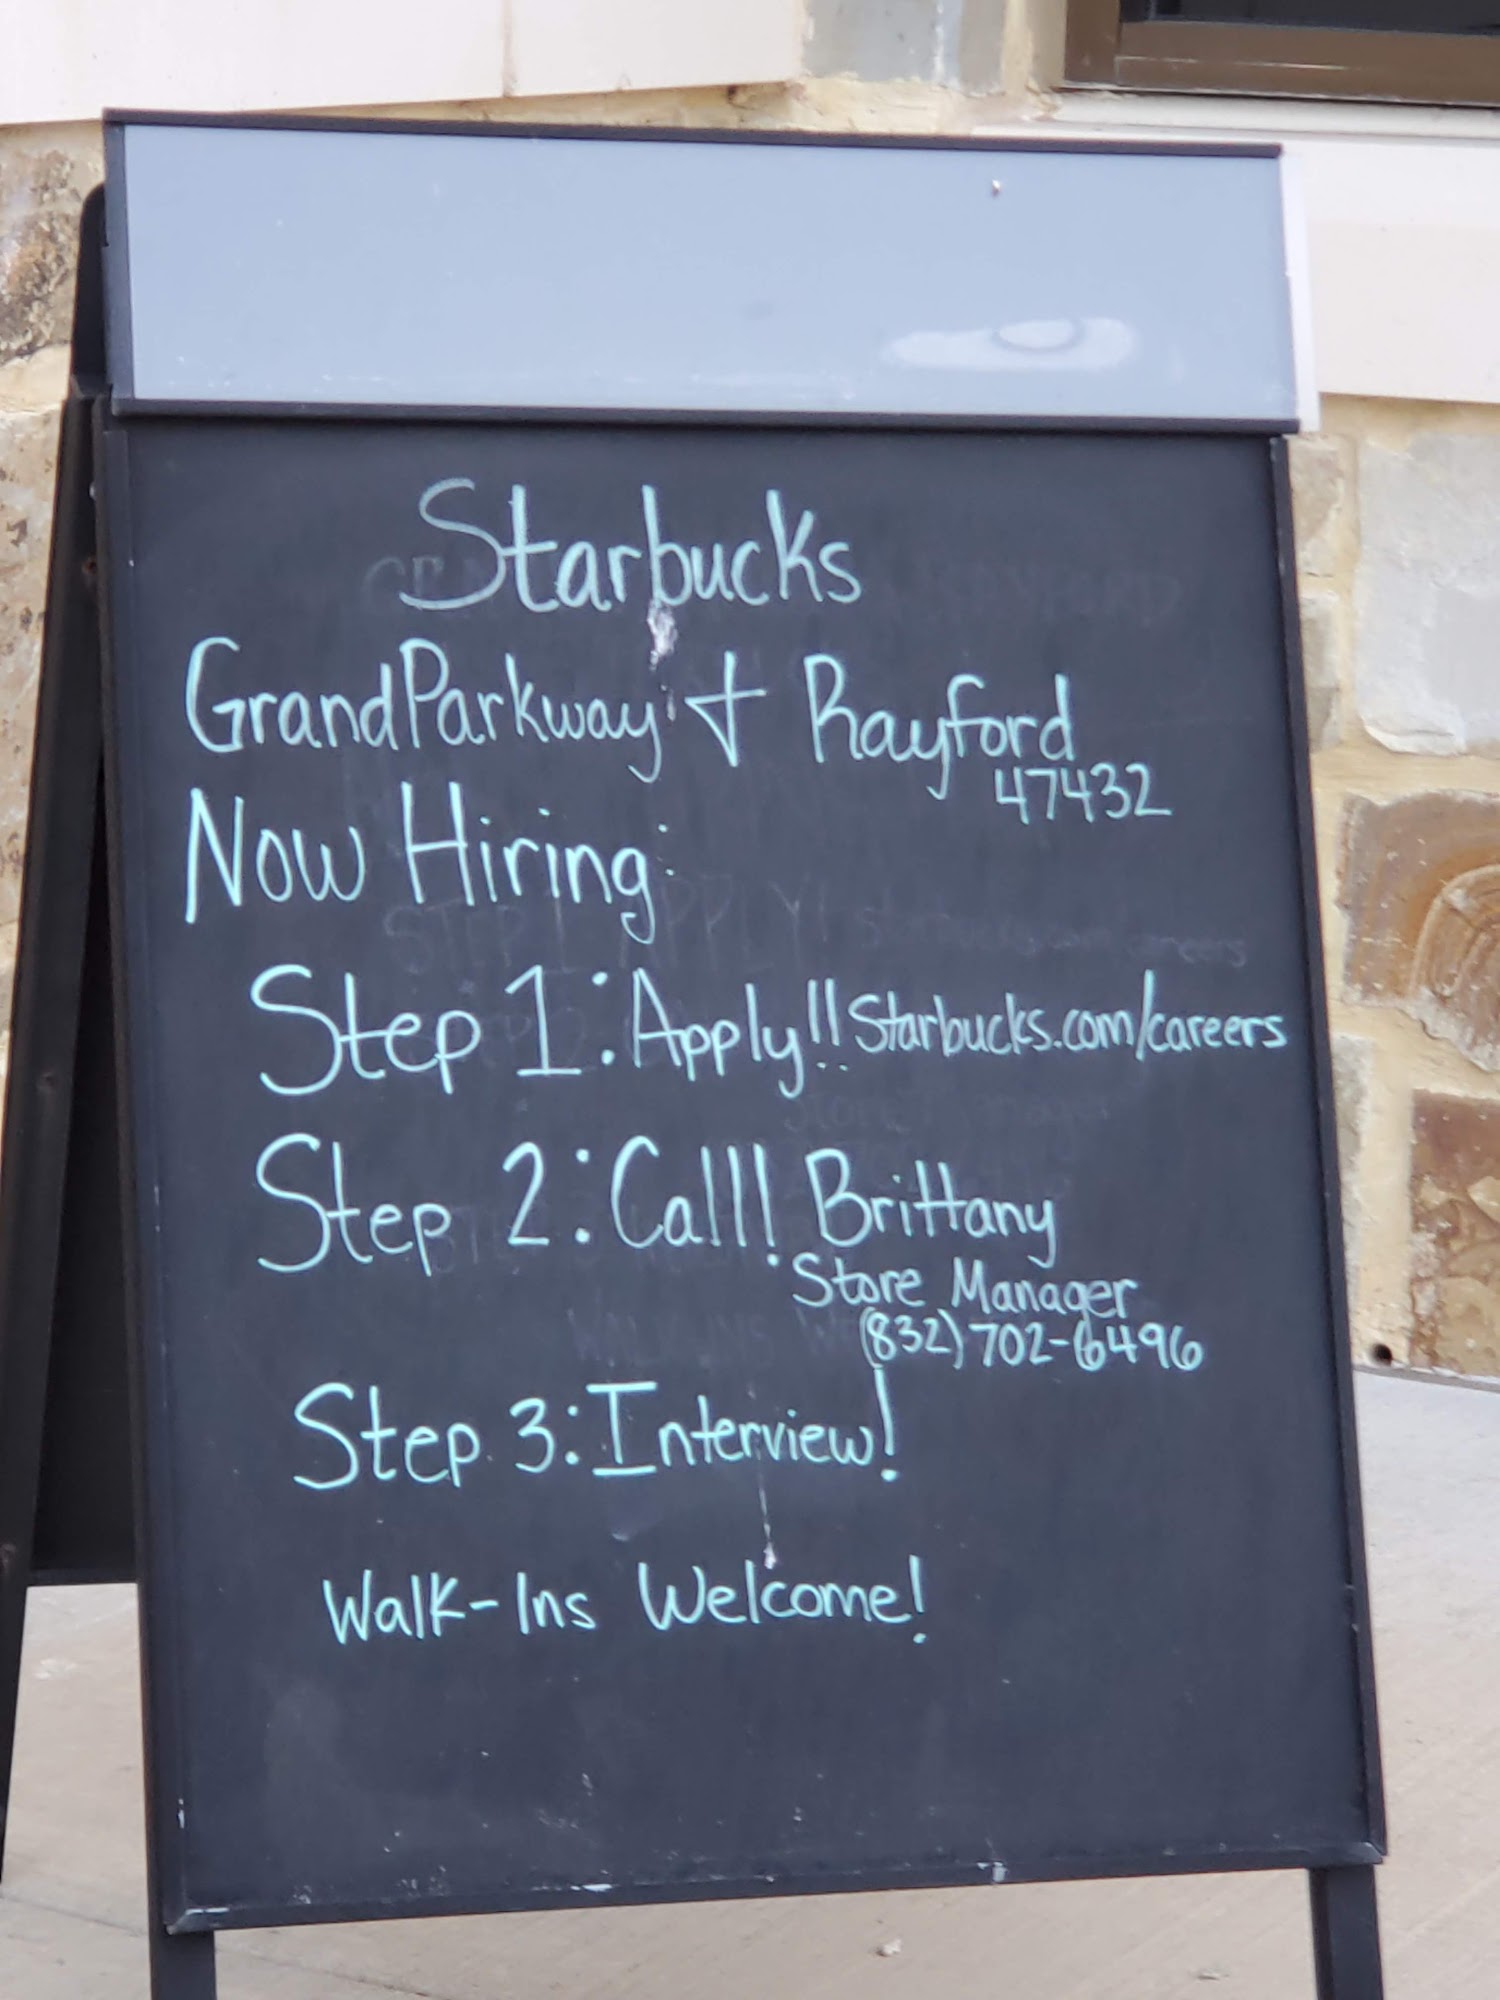 Starbucks
Grand Parkway + Rayford
47432
Now Hiring:
Step 1: Apply!! Starbucks.com/careers
Step 2: Call! Brittany
Store Manager
(832) 702-6496
Step 3: Interview!
Walk-Ins Welcome!